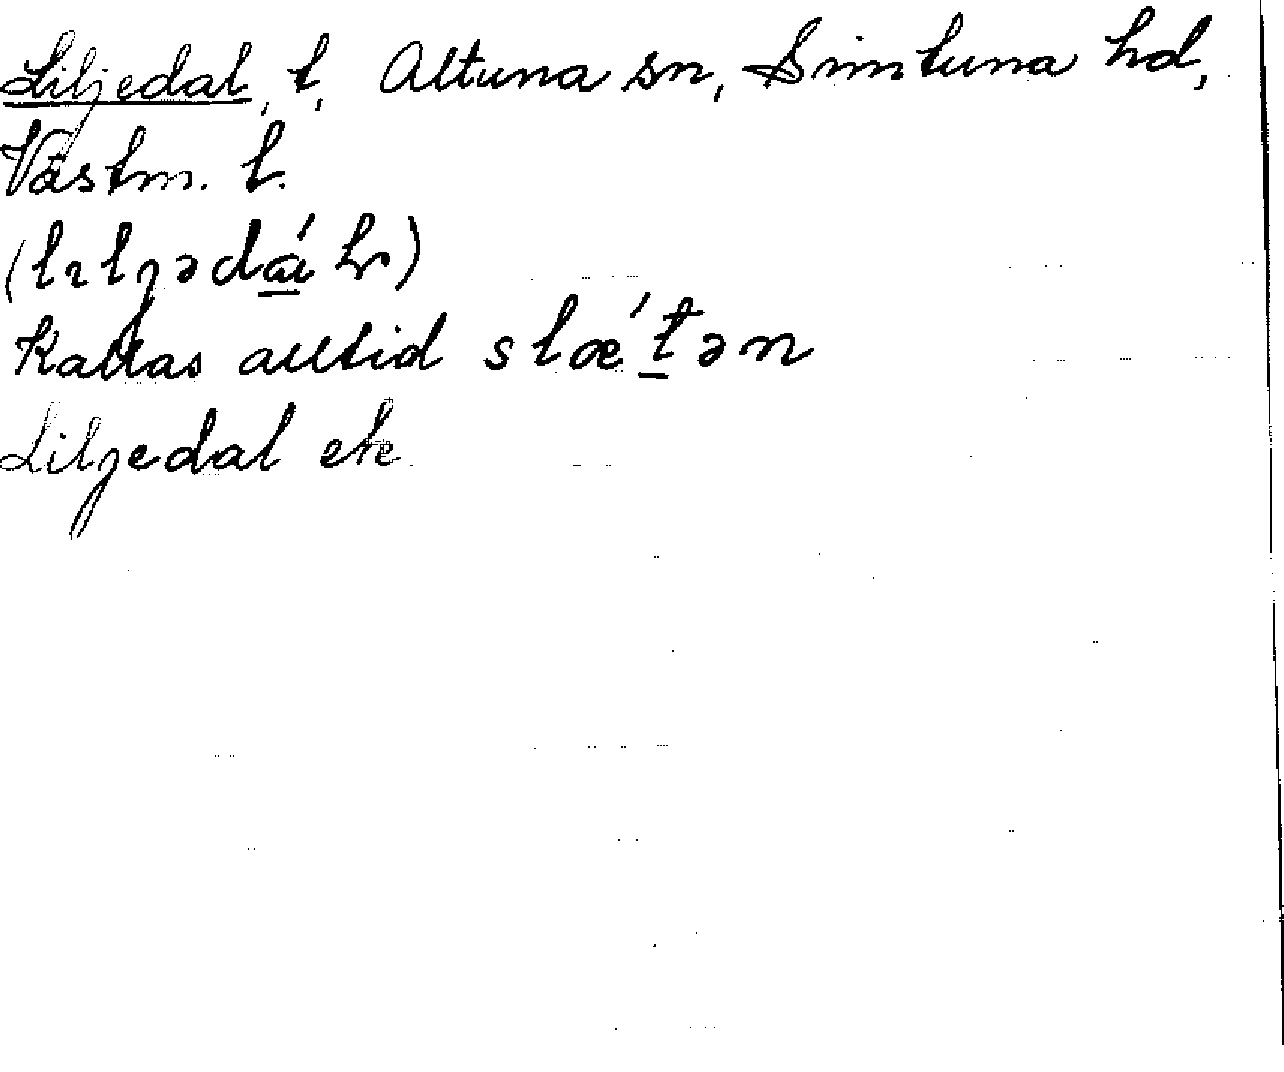 Liljedal, t, Altuna sn, Simtuna hd,
Västm. l.
(lɩljədá̱l)
Kallas alltid slæ´t̠ən
Liljedal ete